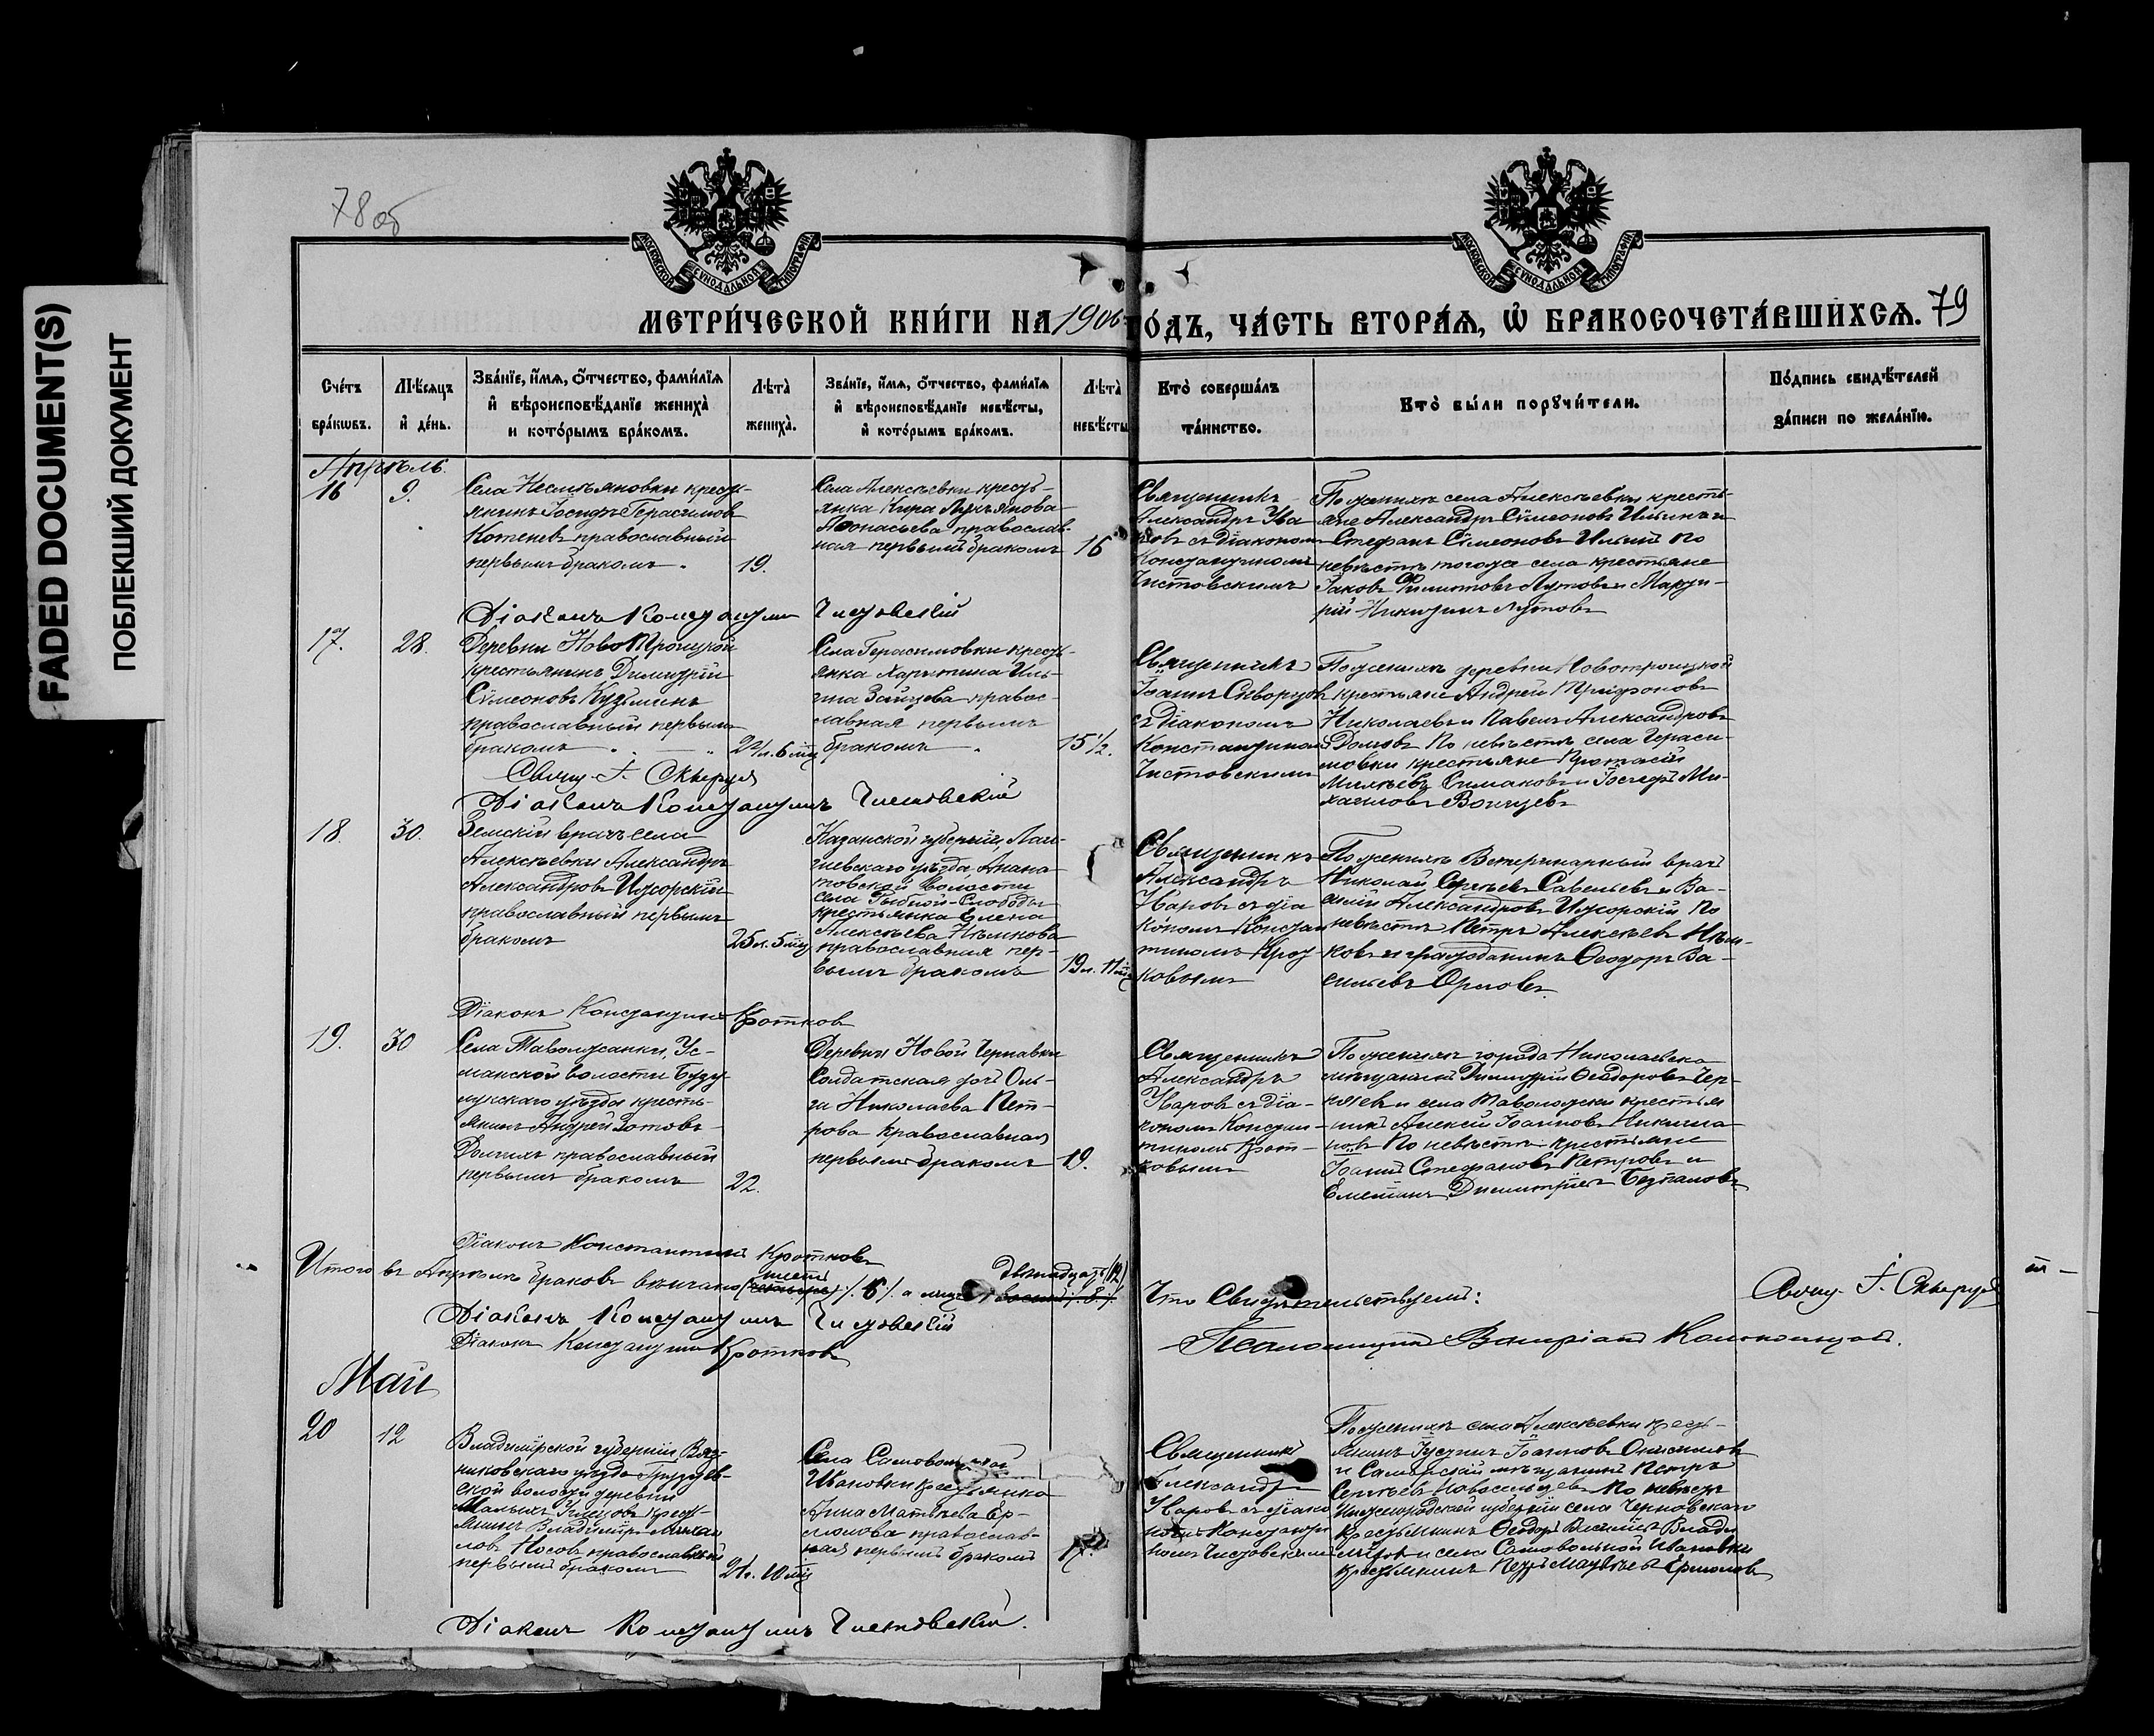 FADED DOCUMENT(S)
ПОБЛЕКШИЙ ДОКУМЕНТ
78об
МОСКОВСКОЙ СѴНОДАЛЬНОЙ ТИПОГРАФІИ
МОСКОВСКОЙ СѴНОДАЛЬНОЙ ТИПОГРАФІИ
МЕТРИ́ЧЕСКОЙ КНИ́ГИ НА 1906 ГО́ДЪ, ЧА́СТЬ ВТОРА́Ѧ, Ѡ БРАКОСОЧЕТА́ВШИХСѦ. 79
Сче́тъ бра́кѡвъ.
Мѣ́сѧцъ и҆ де́нь.
Зва́нїе, и҆́мѧ, о҆́тчество, фами́лїѧ и҆ вѣроисповѣ́данїе жениха̀ и кото́рымъ бра́комъ.
Лѣта̀ жениха̀.
Зва́нїе, и҆́мѧ, о҆́тчество, фами́лїѧ и҆ вѣроисповѣ́данїе невѣ́сты, и҆ кото́рымъ бра́комъ.
Лѣта̀ невѣ́сты
Кто̀ соверша́лъ та́инство.
Кто̀ бы́ли порꙋчи́тели.
По́дпись свидѣ́телей за́писи по жела́нїю.
Апрѣль.
16
9.
Села Несмѣяновки кресть-
янинъ Іосифъ Герасимовъ
Котеневъ православный
первымъ бракомъ.
19.
Села Алексѣевки кресть-
янка Кира Лукьянова
Аѳонасьева православ-
ная первымъ бракомъ
16
Священникъ
Александръ Ува-
ровъ съ діакономъ
Константиномъ
Чистовскимъ
По женихѣ села Алексѣевки кресть-
яне Александръ Сѵмеоновъ Ильинъ и
Стефанъ Сѵмеоновъ Ильинъ По
невѣстѣ того же села крестьяне
Іаковъ Филиповъ Лутовъ и Марти-
рій Никитинъ Лутовъ
Діаконъ Константинъ Чистовскій
17.
28.
Деревни НовоТроицкой
крестьянинъ Димитрій
Сѵмеоновъ Кузьминъ
православный первымъ
бракомъ
22 л. 6 мц
Села Герасимовки кресть-
янка Харитина Иль-
ина Зайцева правос-
лавная первымъ
бракомъ
15 1/2.
Священникъ
Іоаннъ Скворцовъ
съ діакономъ
Константиномъ
Чистовскимъ
По женихѣ деревни Новотроицкой
крестьяне Андрей Трифоновъ
Николаевъ и Павелъ Александровъ
Домовъ По невѣстѣ села Гераси-
мовки крестьяне Протасій
Михѣевъ Симаковъ и Іосифъ Ми-
хаиловъ
Свящ. І. Скворцовъ
Діаконъ Константинъ Чистовскій
18.
30.
Земскій врачъ села
Алексѣевки Александръ
Александровъ Ижорскій
православный первымъ
бракомъ
25 л. 5 мц
Казанской губерніи, Лаи-
шевскаго уѣзда
волости
села Рыбной-Слободы
крестьянка Елена
Алексѣева Нѣмкова
православная пер-
вымъ бракомъ
19 л. 11 мц
Священникъ
Александръ
Уваровъ съ діа
кономъ Констан
тиномъ Крот-
ковымъ
По женихѣ Ветеринарный врачъ
Николай Сергѣевъ Савельевъ и Ва-
силій Александровъ Ижорскій По
невѣстѣ Петръ Алексѣевъ Нѣм-
ковъ и гражданинъ Ѳеодоръ Ва-
сильевъ Орловъ.
Діаконъ Константинъ Кротковъ
19.
30
Села Таволжанки, Ус-
манской волости Бузу
лукскаго уѣзда кресть-
янинъ Андрей Зотовъ
Долгихъ православный
первымъ бракомъ
22.
Деревни Новой Чернавки
Солдатская дочь Оль-
га Николаева Пет-
рова православная
первымъ бракомъ
19.
Священникъ
Александръ
Уваровъ съ діа-
кономъ Констан-
тиномъ Крот-
ковымъ
По женихѣ города Николаевска
мѣщанинъ Димитрій Ѳеодоровъ Чер-
няевъ и села Таволожки крестья
нинъ Алексѣй Іоанновъ Никита-
новъ По невѣстѣ крестьяне
Іоаннъ Стефановъ Петровъ и
Емеліанъ Димитріевъ Безпаловъ
Діаконъ Константинъ Кротковъ
Итого въ Апрѣлѣ браковъ вѣнчано (четыре) шесть /.6/. а лицъ восемь /.8/. двѣнадцать (12)
Что Свидѣтельствуемъ:
Свящ. І. Скворцовъ
Діаконъ Константинъ Чистовскій
Діаконъ Константинъ Кротковъ
Псаломщикъ Валеріанъ Колокольцовъ.
Май
20
12
Владимірской губерніи Вяз-
никовскаго уѣзда
ской волости деревни
Малыхъ кресть-
янинъ Владиміръ Михаи
ловъ Носовъ православный
первымъ бракомъ
21 г. 10 мц
Села Самовольной
Ивановки крестьянка
Анна Матѳеева Ер-
молова православ-
ная первымъ бракомъ
17.
Священникъ
Александръ
Уваровъ съ діако
номъ Константи
номъ Чистовскимъ
По женихѣ села Алексѣевки кресть-
янинъ Іустинъ Іоанновъ Онисимовъ
и Самарскій мѣщанинъ Петръ
Сергѣевъ Новосельцевъ По невѣстѣ
Нижегородской губерніи села Черновскаго
крестьянинъ Ѳеодоръ Влади
міровъ и села Самовольной Ивановки
крестьянинъ Петръ Матѳеевъ Ермоловъ
Діаконъ Константинъ Чистовскій.